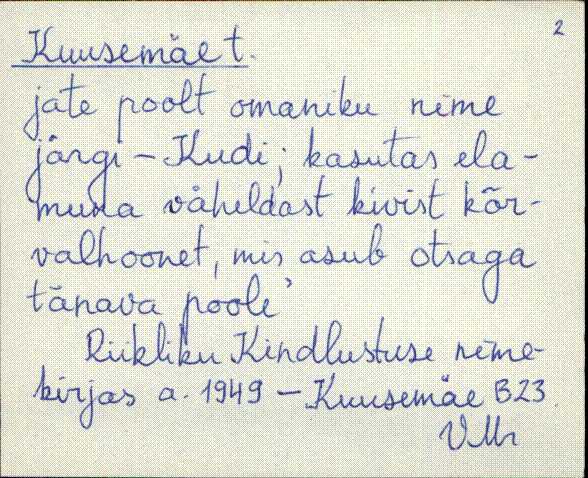 2
Kuusemäe t.
jate poolt omaniku nime
järgi – Kudi; kasutas ela-
muna väheldast kivist kõr-
valhoonet, mis asub otsaga
tänava poole"
Riikliku Kindlustuse nime-
kirjas a. 1949 – Kuusemäe B23.